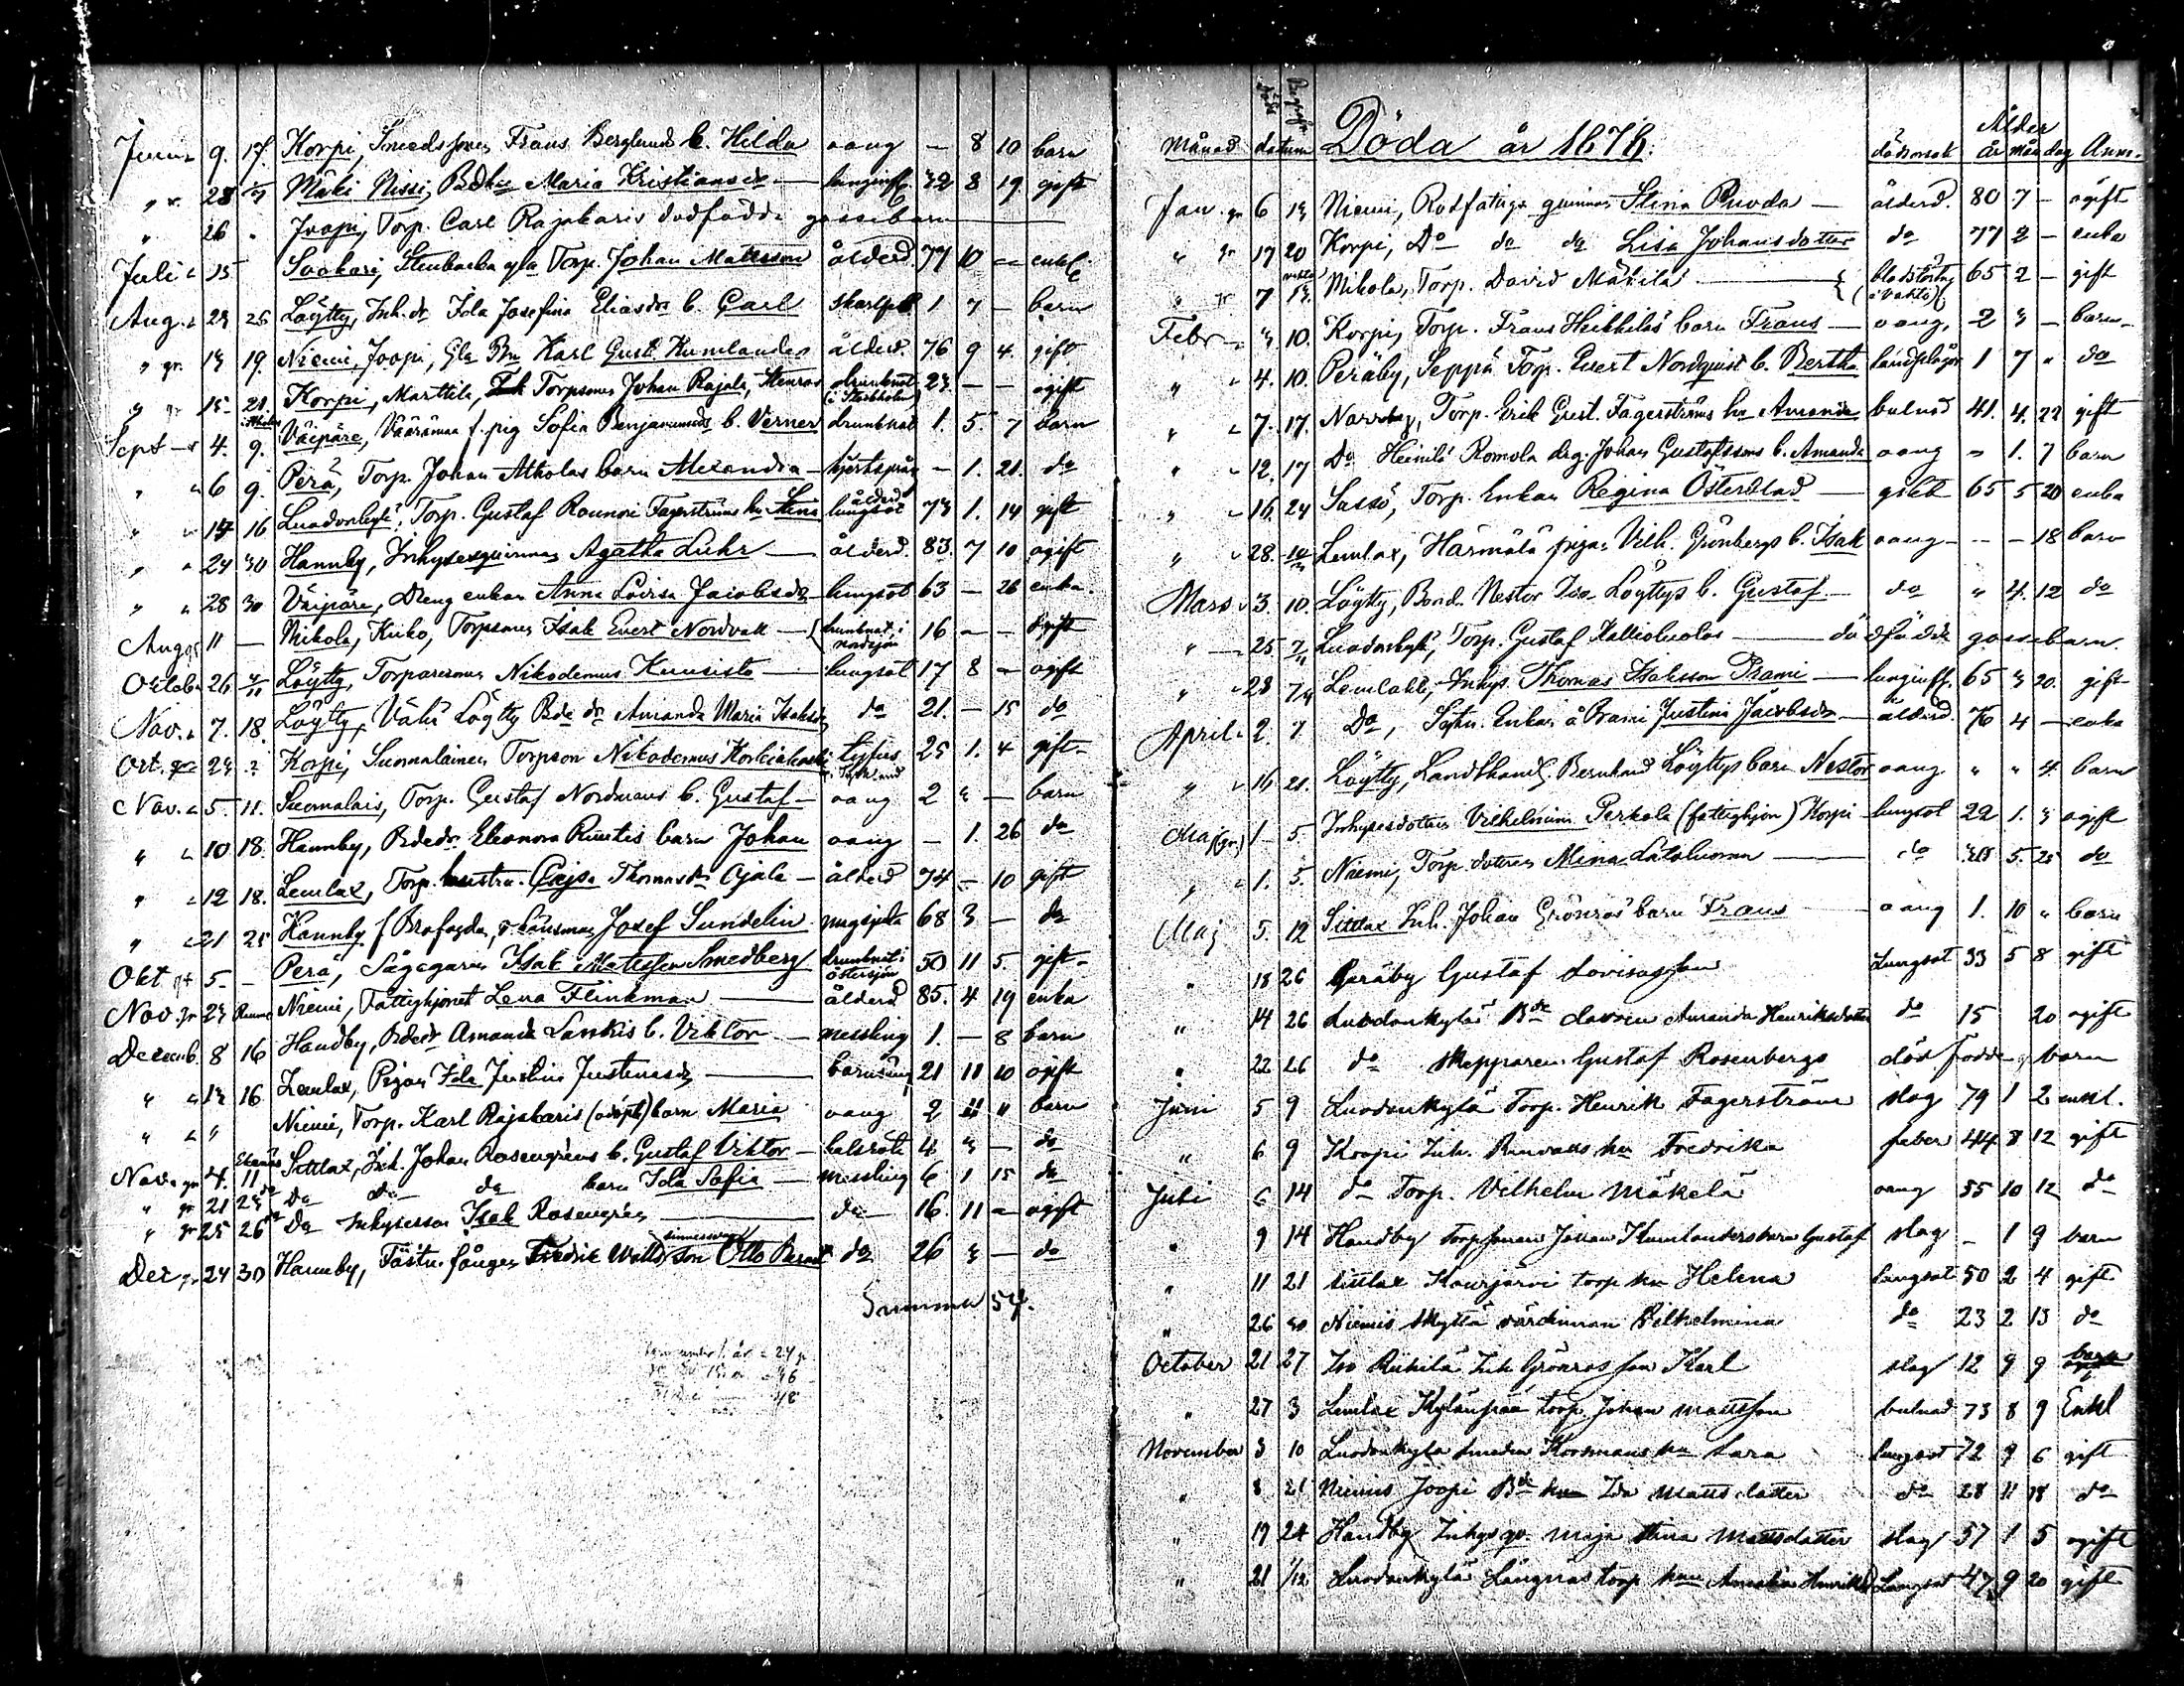 Juni 9. 17. Korpi, Smedssonen Frans Berglunds b. Hilda oang — 8 10 barn
" 28 Mäki Nissi, Bdhu Maria Kristiansdr lunginfl. 32 8 19 gift
" 26 " Joopi, Torp. Carl Rajakaris dödfödda gossebarn
Juli 15 Saakari, Stenbacka gla Torp. Johan Matsson ålderd. 77 10 — enkl.
Aug. 23 25 Löytty, Inh. dr Ida Josefina Eliasdr b. Carl 1 7 — barn
" gr. 13 19. Niemi, Joopi, Gla Bn Karl Gust. Kumlander ålderd. 76 9 4. gift
" gr 15 21. Korpi, Marttila, Torpsonen Johan Rajala, Stenroos drunknat (i Stockholm) 23 — — ogift
Sept 4. 9. Väipäre, Vääränen f. pig Sofia Benjaminsds b. Verner drunknat 1. 5. 7 barn
" " 6 9. Perä, Torp. Johan Alholas barn Alexandra hjertsprång — 1. 21. do
" " 14 16 Luodonkylä, Torp. Gustaf Rounoi Fagerströms hu Stina ålderd. lungsot 73 1. 14 gift
" " 24 30 Hannby, Inhysesqvinnan Agatha Luhr ålderd. 83. 7 10 ogift
" " 28 30 Väipäre, Dreng enkan Anna Lovisa Jacobsdr lungsot 63 — 26 enka.
Aug gr 11 — Mikola, Kuko, Torpsonen Isak Evert Nordvall (drunknat i Nordsjön 16 — — ogift
Octob. 26 Löytty, Torparesonen Nikodemus Kuusisto lungsot 17 8 — ogift
Nov. 7. 18. Löytty, Vähä Löytty Bde dr Amanda Maria Isaksdr do 21. — 15 do
Oct. 23 ? Korpi, Suomalainen Torpson Nikodemus typhus 25 1. 4 gift
Nov. 5. 11. Suomalais, Torp. Gustaf Nordmans b. Gustaf oang 2 3 — barn
" " 10 18. Hannby, Bdedr. Eleonora Ruutis barn Johan oang — 1. 26 do
" 12 18. Lemlax, Torp. hustru Cajsa Thomasdr Ojala ålderd 74 — 10 gift
" 21 25 Hannby f Brofogden, Länsman Josef Sundelin magsjuka 68 3 — do
Okt gr 5 — Perä, Sågegaren Isak Matsson Smedberg drunknat i Östersjön 50 11 5. gift
Nov. gr 23 Niemi, Fattighjonet Lena Flinkman ålderd 85. 4 19 enka
Decemb. 8 16 Handby, Bdedr Amanda Lankis b. Viktor messling 1. — 8 barn
" " 13 16 Lemlax, Pigan Ida Justina Justinasdr barnsäng 21 11 10 ogift
" " " Niemi, Torp. Karl Rajakaris (adopt) barn Maria oang 2 11 " barn
Nov. gr 4. 11 Ekenäs Sittlax, Inh. Johan Rosengrens b. Gustaf Viktor halsröta 4 3 — do
" gr 21 25 do Do do do barn Ida Sofia messling 6 1 15 do
" gr 25 26 do Do Inhyseson Isak Rosengren do 16 11 — ogift
Dec gr 24 30 Hannby, Fästn. fången Fredric Watts sinnessvag son Otto Bernt do 26 3 — do
Summa 54.
Månad datum Döda år 1878. dödsorsak Ålder år mån dag Anm.
Jan. gr 6 13 Niemi, Rotfattiga qvinnan Stina Ruoda ålderd. 80 7 — ogift
" gr 17 20 Korpi, Do do do Lisa Johansdotter do 77 2 — enka
" gr 7 13. Mikola, Torp. David Mäkilä 65 2 — gift
Febr 3. 10. Korpi, Torp. Frans Heikkiläs barn Frans oang. 2 3 — barn
" " 4. 10. Peräby, Seppä Torp. Evert Nordqvist b. Bertha landsplågor 1 7 " do
" " 7. 17. Torp. Erik Gust. Fagerströms hu Amanda bulnad 41. 4. 22 gift
" " 12. 17 Do Heinilä Romola drg. Johan Gustafssons b. Amanda oang — 1. 7 barn
" " 16. 24 Sassö, Torp. Enkan Regina Österblad gikt 65 5 20 enka
" " 28. Lemlax, Härmälä pigan Vilh. Grönbergs b. Isak oang — — 18 barn
Mars 3. 10. Löytty, Bond. Nestor Iso Löyttys b. Gustaf do " 4. 12 do
" 25 Luodonkylä, Torp. Gustaf Kallioluotos dödfödde gossebarn.
" 28 7/4 Lemlahti, Inhys. Thomas Isaksson Prami lunginfl. 65 3 20. gift
April 2. 7 Do, Sytn. Enkan å Prami Justina Jacobsdr ålderd. 76 4 — enka
" 16 21. Löytty, Landthandl. Bernhard Löyttys barn Nestor oang " " 4. barn
Maj (gr) 1 5. Inhysesdottren Vilhelmina Perkola (fattighjon) Korpi lungsot 22 1. 3 ogift
" " 1. 5. Niemi, Torp. dottren Mina Lataluoma do 5. 25 do
Maj 5. 12 Sittlax Inh. Johan Grönros barn Frans oang 1. 10 " barn
" 18 26 Peräby Gustaf Lovisasson Lungsot 33 5 8 gift
" 14 26 Luodonkylä Bde dottren Amanda Henriksdotter do 15 20 ogift
" 22 26 do skepparen Gustaf Rosenbergs död födde g barn
Juni 5 9 Luodonkylä Torp. Henrik Fagerström slag 79 1 2 enkl.
" 6 9 Korpi Inh. hu Fredrika feber 44 8 12 gift
Juli 6 14 do Torp. Vilhelm Mäkelä oang 55 10 12 do
" 9 14 Handby torpsonen Johan Kumlanders barn Gustaf slag — 1 9 barn
" 11 21 Sittlax Kaurjärvi torp hu Helena lungsot 50 2 4 gift
" 26 30 Niemis Skyttä värdinnan Vilhelmina do 23 2 13 do
October 21 27 Iso Riihilä Inh Grönros son Karl slag 12 9 9 barn
" 27 3 Lemlax Kylänpää torp. Johan Mattsson bulnad 73 8 9 Enkl
November 3 10 Luodonkylä smeden Korsmans hu Sara lungsot 72 9 6 gift
" 8 21 Niemis Joopi Bde hu Ida Matts dotter do 28 11 18 do
" 19 24 Handby Inhys qv. Maja Stina Mattsdotter slag 57 1 5 ogift
" 21 1/12 Luodonkylä Långnäs torp hu Amalia Henriksd Lungsot 47 9 20 gift